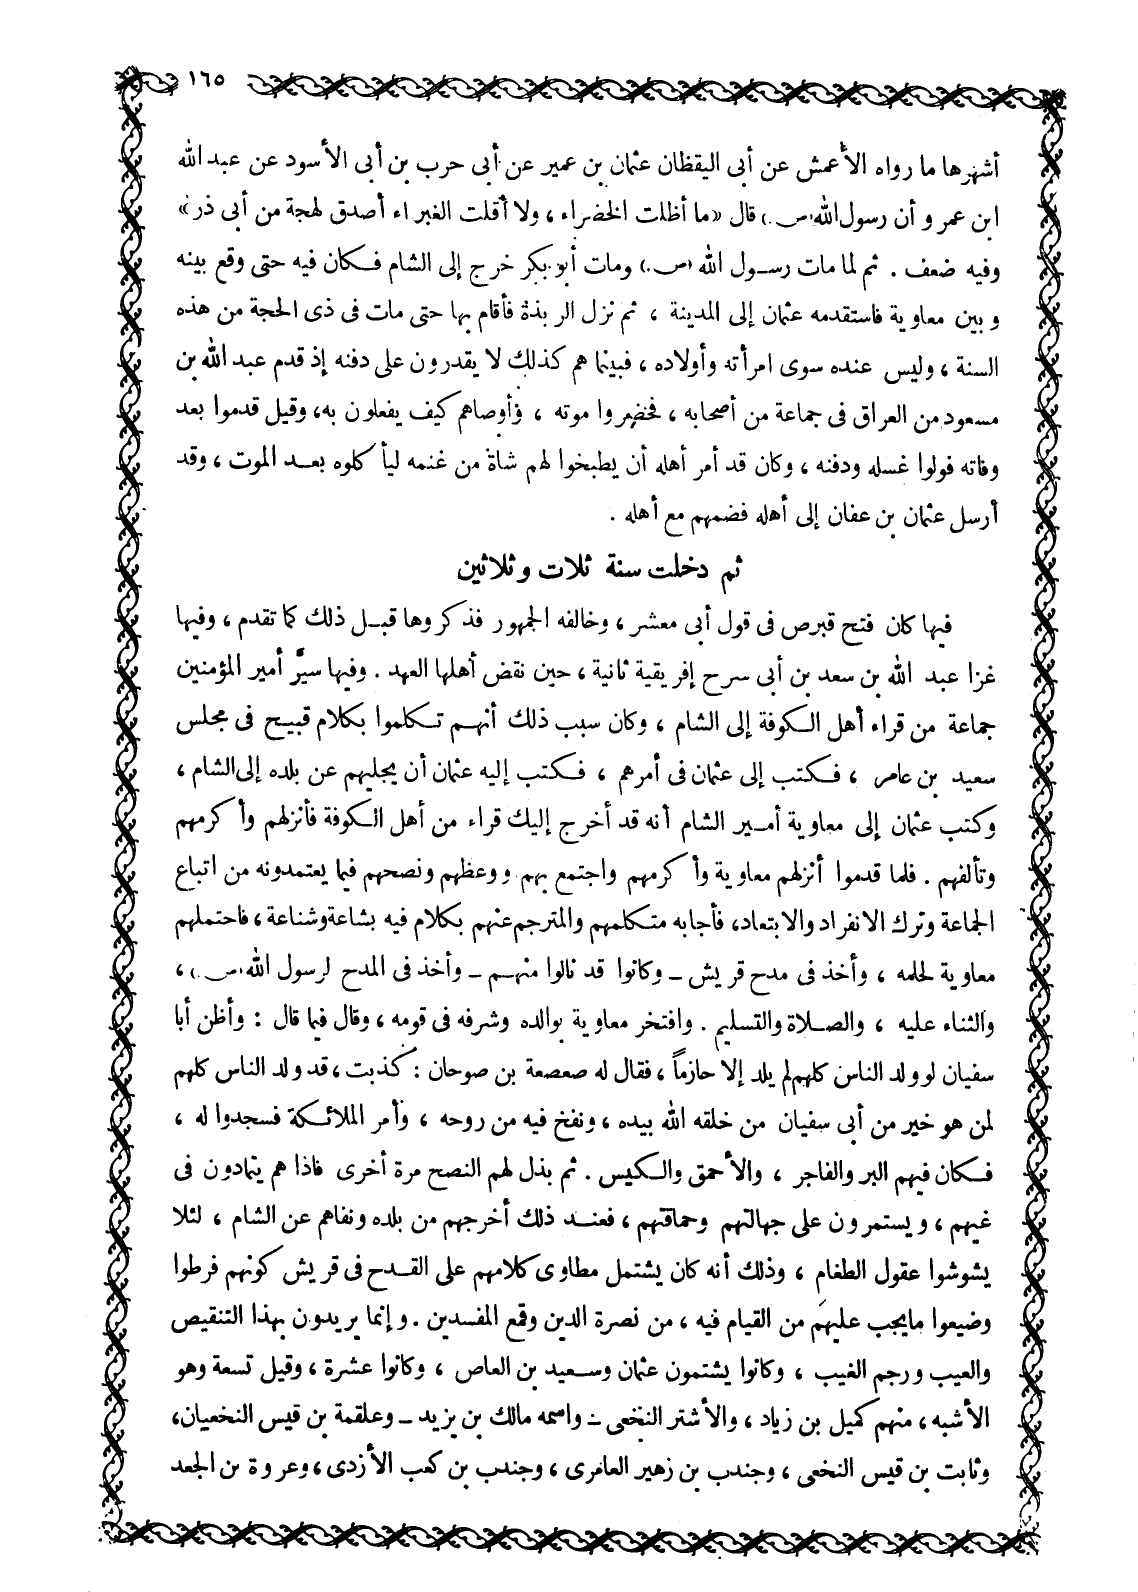 ١٦٥
أشهرها ما رواه الأعمش عن أبى اليقظان عثمان بن عمير عن أبى حرب بن أبى الأسود عن عبد الله
ابن عمر و أن رسول الله (ص.) قال «ما أظلت الخضراء ، ولا أقلت الغبراء أصدق لهجة من أبى ذر»
وفيه ضعف . ثم لما مات رسول الله (ص.) ومات أبو بكر خرج إلى الشام فكان فيه حتى وقع بينه
و بين معاوية فاستقدمه عثمان إلى المدينة ، ثم نزل الربذة فأقام بها حتى مات فى ذى الحجة من هذه
السنة ، وليس عنده سوى امرأته وأولاده ، فبينما هم كذلك لا يقدرون على دفنه إذ قدم عبد الله بن
مسعود من العراق فى جماعة من أصحابه ، فحضروا موته ، وأوصاهم كيف يفعلون به، وقيل قدموا بعد
وفاته فولوا غسله ودفنه ، وكان قد أمر أهله أن يطبخوا لهم شاة من غنمه ليأكلوه بعد الموت ، وقد
أرسل عثمان بن عفان إلى أهله فضمهم مع أهله .
ثم دخلت سنة ثلاث وثلاثين
فيها كان فتح قبرص فى قول أبى معشر ، وخالفه الجمهور فذكروها قبل ذلك كما تقدم ، وفيها
غزا عبد الله بن سعد بن أبى سرح إفريقية ثانية ، حين نقض أهلها العهد . وفيها سيَّر أمير المؤمنين
جماعة من قراء أهل الكوفة إلى الشام ، وكان سبب ذلك أنهم تكلموا بكلام قبيح فى مجلس
سعيد بن عامر ، فكتب إلى عثمان فى أمرهم ، فكتب إليه عثمان أن يجليهم عن بلده إلى الشام ،
وكتب عثمان إلى معاوية أمير الشام أنه قد أخرج إليك قراء من أهل الكوفة فأنزلهم وأكرمهم
وتألفهم . فلما قدموا أنزلهم معاوية وأكرمهم واجتمع بهم ووعظهم ونصحهم فيما يعتمدونه من اتباع
الجماعة وترك الانفراد والابتعاد، فأجابه متكلمهم والمترجم عنهم بكلام فيه بشاعة وشناعة ، فاحتملهم
معاوية لحلمه ، وأخذ فى مدح قريش ــ وكانوا قد نالوا منهم ــ وأخذ فى المدح لرسول الله (ص.) ،
والثناء عليه ، والصلاة والتسليم . وافتخر معاوية بوالده وشرفه فى قومه ، وقال فيما قال : وأظن أبا
سفيان لو ولد الناس كلهم لم يلد إلا حازماً ، فقال له صعصعة بن صوحان : كذبت ، قد ولد الناس كلهم
لمن هو خير من أبى سفيان من خلقه الله بيده ، ونفخ فيه من روحه ، وأمر الملائكة فسجدوا له ،
فكان فيهم البر والفاجر ، والأحمق والكيس . ثم بذل لهم النصح مرة أخرى فاذا هم يتمادون فى
غيهم ، ويستمرون على جهالتهم وحماقتهم ، فعند ذلك أخرجهم من بلده ونفاهم عن الشام ، لئلا
يشوشوا عقول الطغام ، وذلك أنه كان يشتمل مطاوى كلامهم على القدح فى قريش كونهم فرطوا
وضيعوا ما يجب عليهم من القيام فيه ، من نصرة الدين وقمع المفسدين . وإنما يريدون بهذا التنقيص
والعيب ورجم الغيب ، وكانوا يشتمون عثمان وسعيد بن العاص ، وكانوا عشرة ، وقيل تسعة وهو
الأشبه ، منهم كميل بن زياد ، والأشتر النخعى ــ واسمه مالك بن يزيد ــ وعلقمة بن قيس النخعيان،
وثابت بن قيس النخعى ، وجندب بن زهير العامرى ، وجندب بن كعب الأزدى ، وعروة بن الجعد